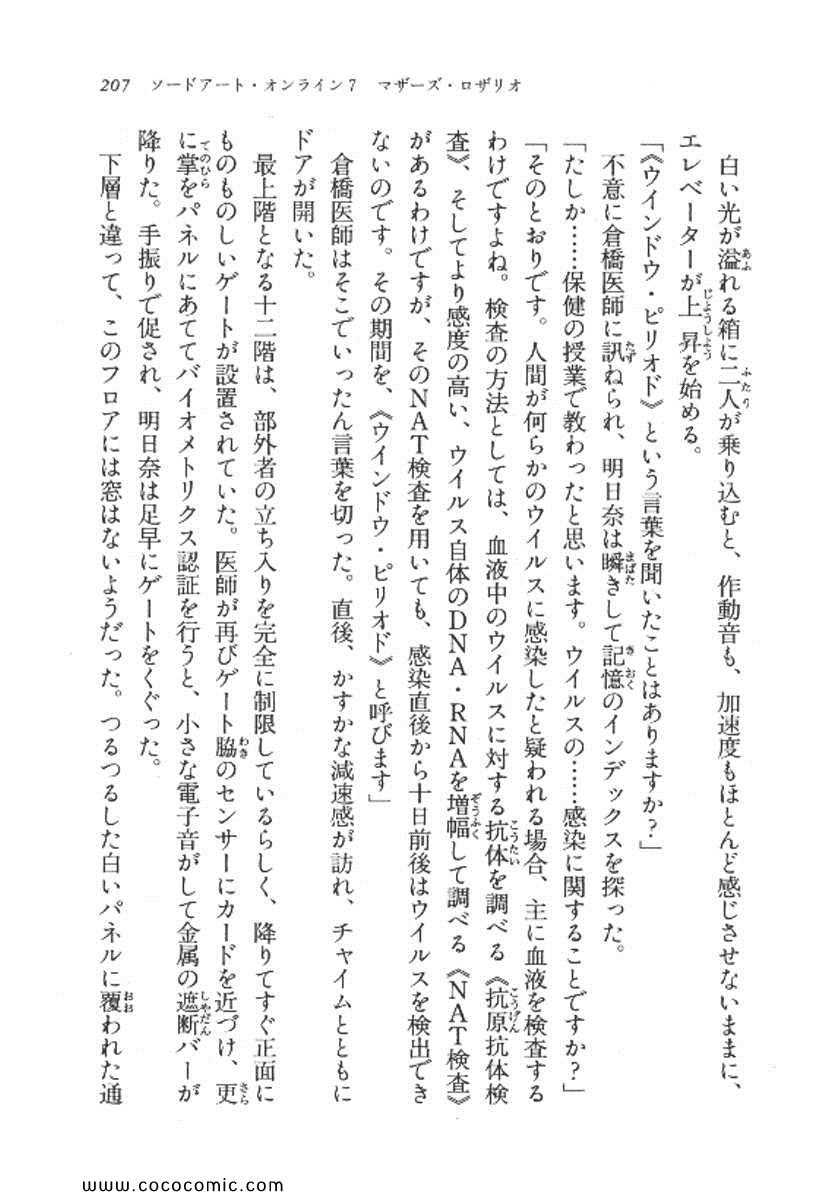 207　ソードアート・オンライン7　マザーズ・ロザリオ
　白い光が溢れる箱に二人が乗り込むと、作動音も、加速度もほとんど感じさせないままに、
エレベーターが上昇を始める。
「《ウインドウ・ピリオド》という言葉を聞いたことはありますか？」
　不意に倉橋医師に訊ねられ、明日奈は瞬きして記憶のインデックスを探った。
「たしか……保健の授業で教わったと思います。ウイルスの……感染に関することですか？」
「そのとおりです。人間が何らかのウイルスに感染したと疑われる場合、主に血液を検査する
わけですよね。検査の方法としては、血液中のウイルスに対する抗体を調べる《抗原抗体検
査》、そしてより感度の高い、ウイルス自体のDNA・RNAを増幅して調べる《NAT検査》
があるわけですが、そのNAT検査を用いても、感染直後から十日前後はウイルスを検出でき
ないのです。その期間を、《ウインドウ・ピリオド》と呼びます」
　倉橋医師はそこでいったん言葉を切った。直後、かすかな減速感が訪れ、チャイムとともに
ドアが開いた。
　最上階となる十二階は、部外者の立ち入りを完全に制限しているらしく、降りてすぐ正面に
ものものしいゲートが設置されていた。医師が再びゲート脇のセンサーにカードを近づけ、更
に掌をパネルにあててバイオメトリクス認証を行うと、小さな電子音がして金属の遮断バーが
降りた。手振りで促され、明日奈は足早にゲートをくぐった。
　下層と違って、このフロアには窓はないようだった。つるつるした白いパネルに覆われた通
www.cococomic.com